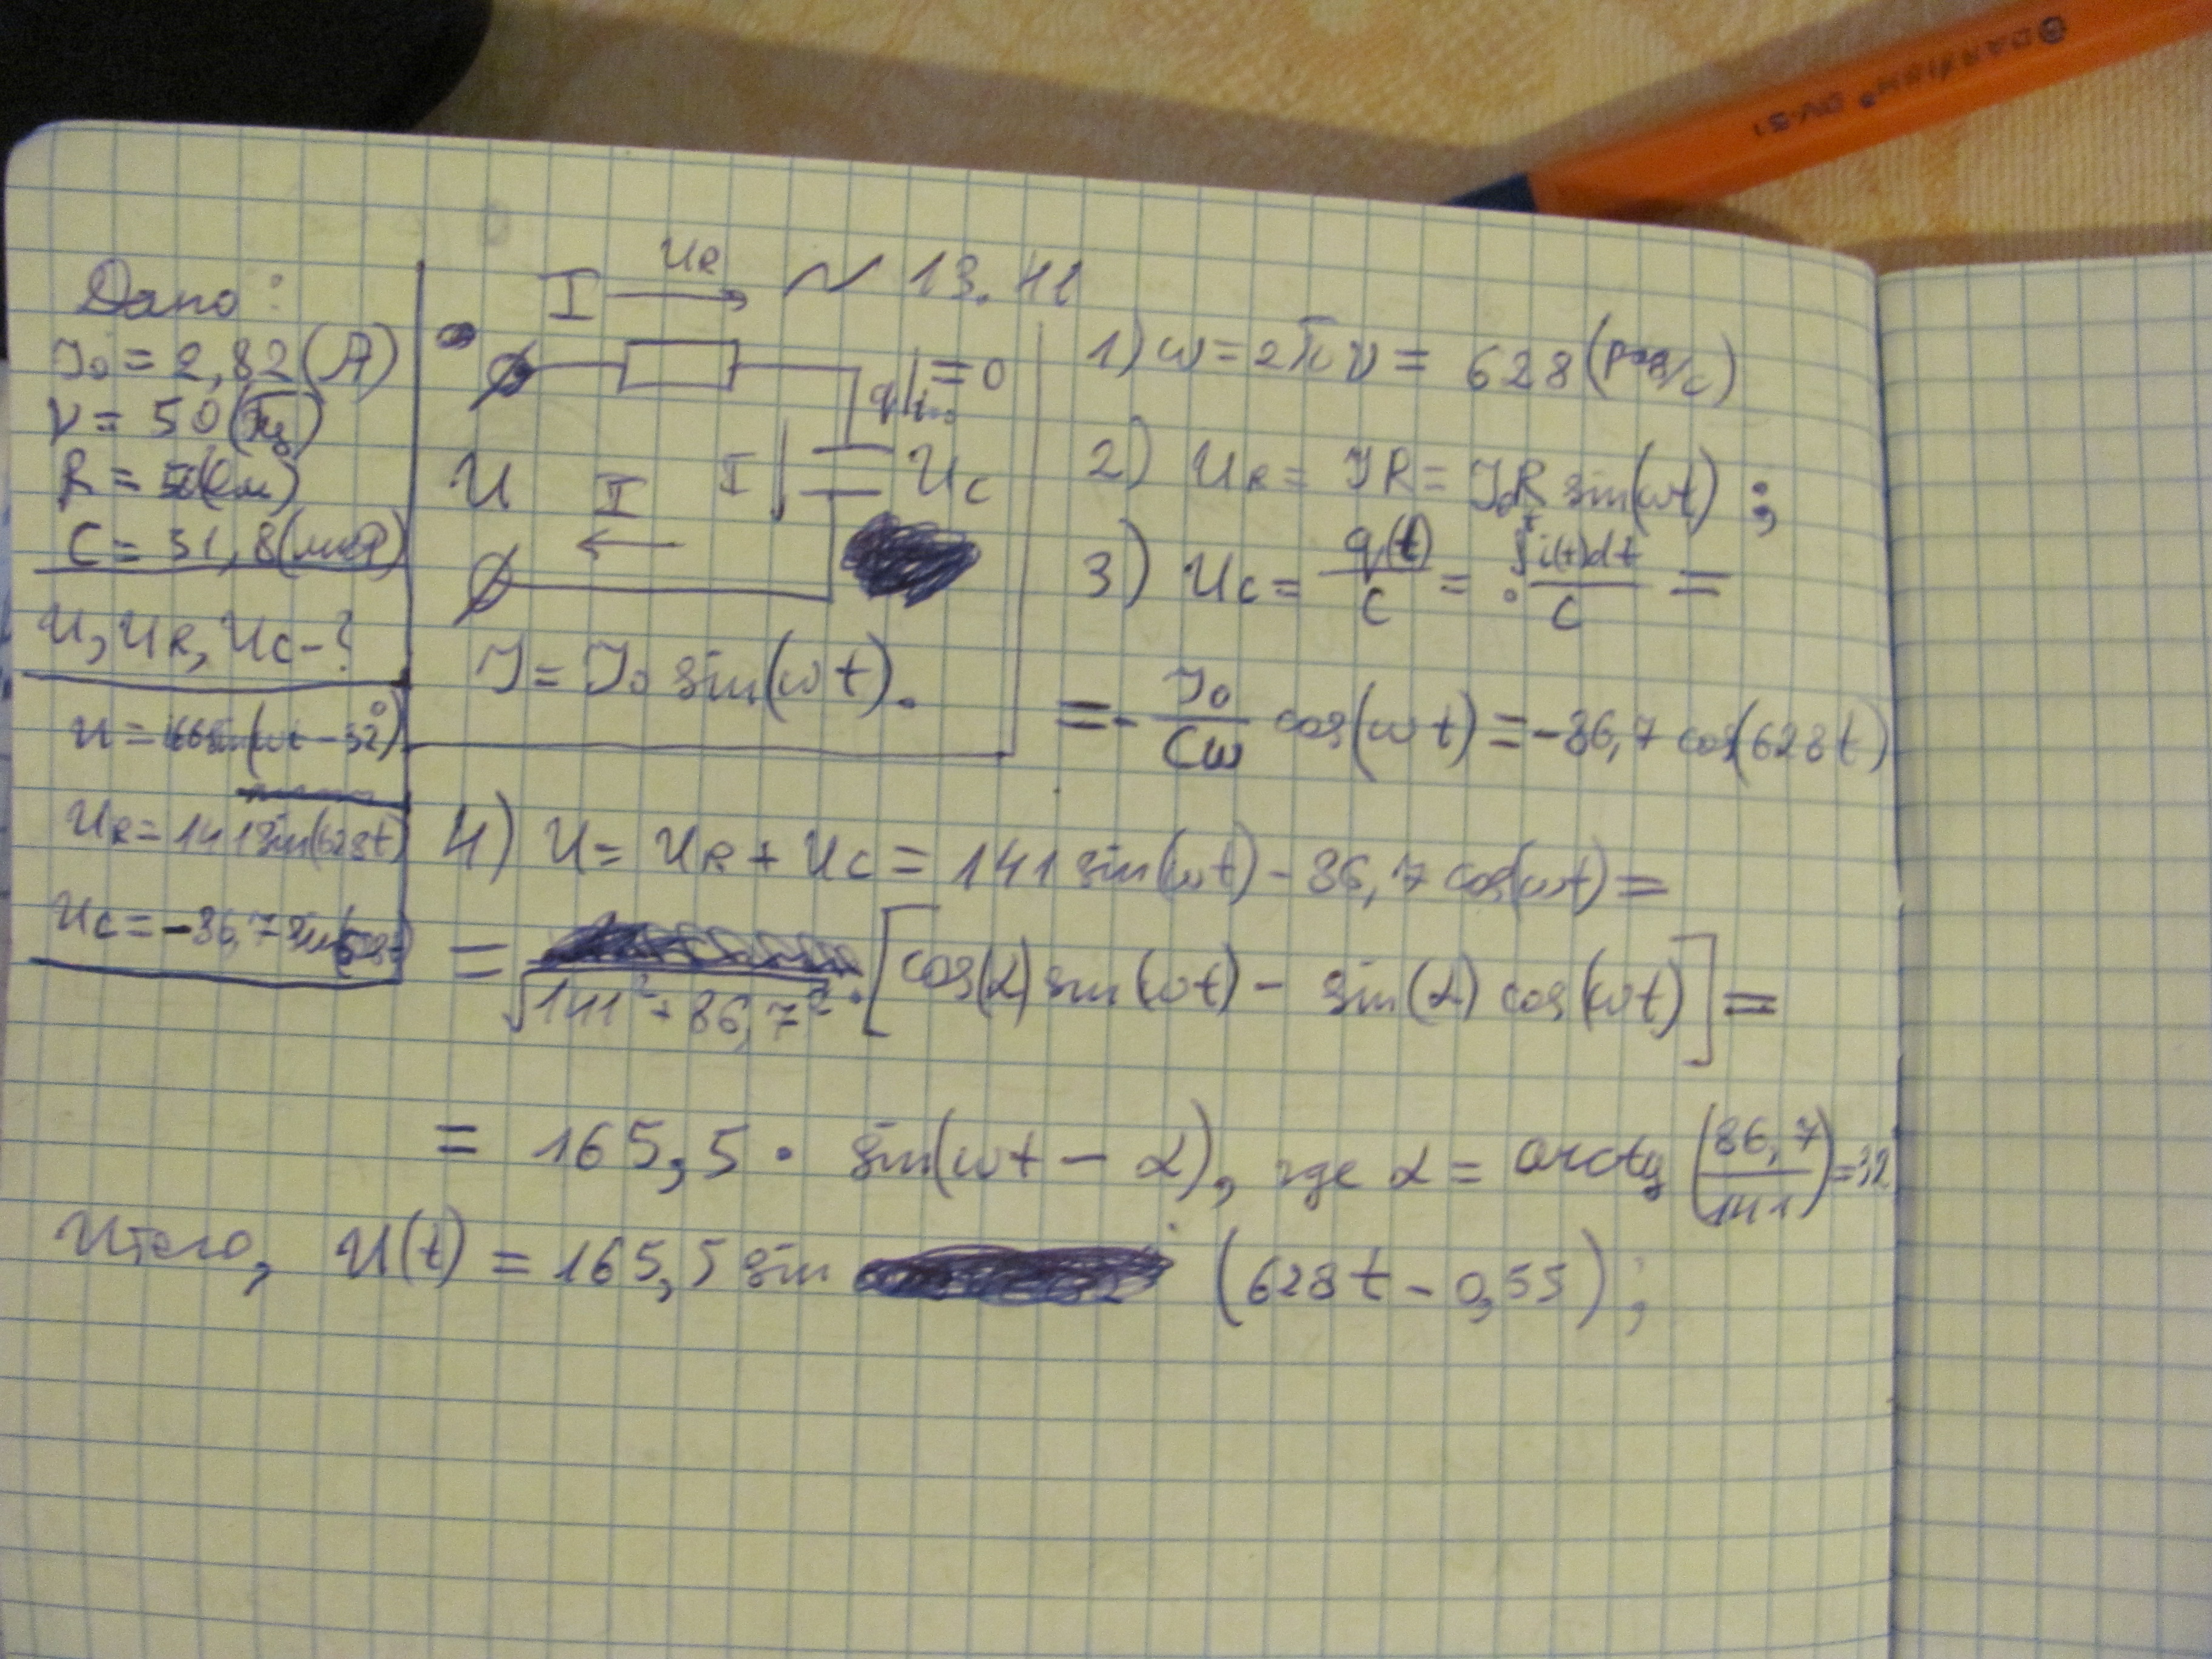 DARVISH® DV-51
I U_R → ~ 13.41
Дано:
I₀ = 2,82 (А)
ν = 50 (Гц)
R = 50 (Ом)
C = 31,8 (мкФ)
U, U_R, U_C - ?
U = (ωt - 32°)
U_R = 141 sin(628t)
U_C = -86,7
q|t=0 = 0
U I I U_C
I = I₀ sin(ωt).
1) ω = 2πν = 628 (рад/с)
2) U_R = IR = I₀R sin(ωt) ;
3) U_C = q(t)/C = ₀∫ᵗ i(t)dt/C =
= - I₀/(Cω) cos(ωt) = -86,7 cos(628t)
4) U = U_R + U_C = 141 sin(ωt) - 86,7 cos(ωt) =
= √(141² + 86,7²) · [cos(α) sin(ωt) - sin(α) cos(ωt)] =
= 165,5 · sin(ωt - α), где α = arctg (86,7/141) = 32
Итого, U(t) = 165,5 sin (628t - 0,55) ;